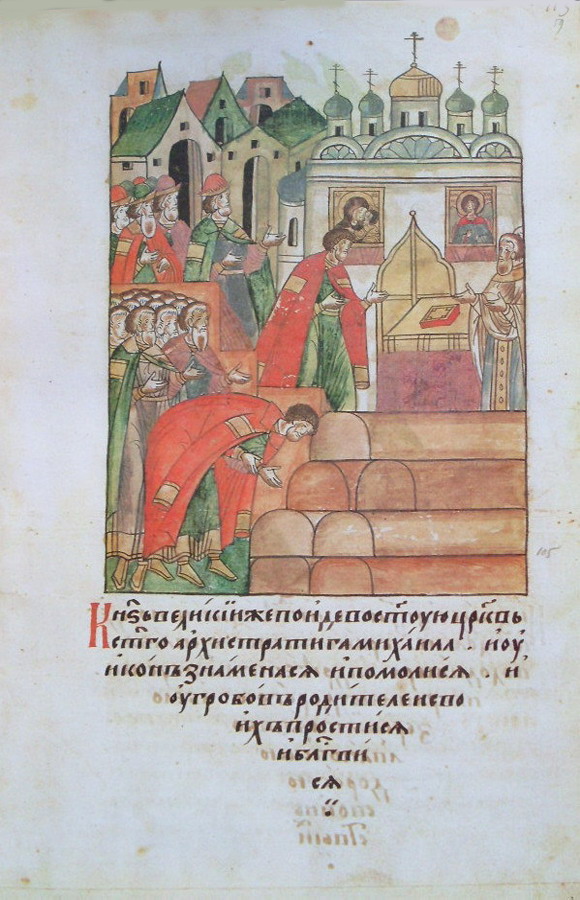 Кн҃ѕь великїи же поиде во ст҃оую цр҃квь
ст҃го архистратига михаила . и оу
иконъ знаменася и помолися . и
оу гробовъ родителеи сво
ихъ простися
и бл҃гви
ся
105